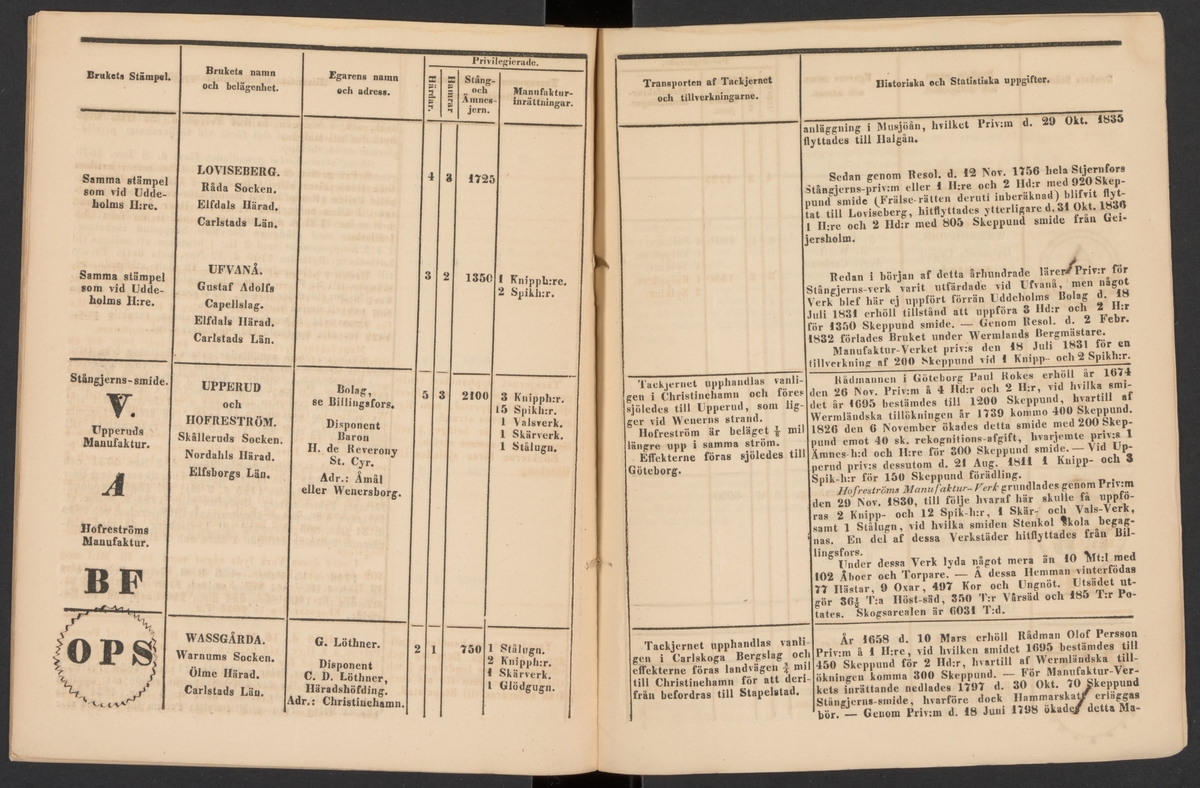 Brukets Stämpel.
Brukets namn
och belägenhet.
Egarens namn
och adress.
Privilegierade.
Härdar.
Hamrar
Stång-
och
Ämnes-
jern.
Manufaktur-
inrättningar.
Samma stämpel
som vid Udde-
holms H:re.
LOVISEBERG.
Råda Socken.
Elfdals Härad.
Carlstads Län.
4 3 1725
Samma stämpel
som vid Udde-
holms H:re.
UFVANÅ.
Gustaf Adolfs
Capellslag.
Elfdals Härad.
Carlstads Län.
3 2 1350
1 Knipph:re.
2 Spikh:r.
Stångjerns-smide.
V.
Upperuds
Manufaktur.
A
Hofreströms
Manufaktur.
BF
UPPERUD
och
HOFRESTRÖM.
Skålleruds Socken.
Nordahls Härad.
Elfsborgs Län.
Bolag,
se Billingsfors.
Disponent
Baron
H. de Reverony
St. Cyr.
Adr.: Åmål
eller Wenersborg.
5 3 2100
3 Knipph:r.
15 Spikh:r.
1 Valsverk.
1 Skärverk.
1 Stålugn.
OPS
WASSGÅRDA.
Warnums Socken.
Ölme Härad.
Carlstads Län.
G. Löthner.
Disponent
C. D. Löthner,
Häradshöfding.
Adr.: Christinehamn.
2 1 750
1 Stålugn.
2 Knipph:r.
1 Skärverk.
1 Glödgugn.
Transporten af Tackjernet
och tillverkningarne.
Historiska och Statistiska uppgifter.
anläggning i Musjöån, hvilket Priv:m d. 29 Okt. 1835
flyttades till Halgån.
Sedan genom Resol. d. 12 Nov. 1756 hela Stjernfors
Stångjerns-priv:m eller 1 H:re och 2 Hd:r med 920 Skep-
pund smide (Frälse-rätten deruti inberäknad) blifvit flyt-
tat till Loviseberg, hitflyttades ytterligare d. 31 Okt. 1836
1 H:re och 2 Hd:r med 805 Skeppund smide från Gei-
jersholm.
Redan i början af detta århundrade lärer Priv:r för
Stångjerns-verk varit utfärdade vid Ufvanå, men något
Verk blef här ej uppfört förrän Uddeholms Bolag d. 18
Juli 1831 erhöll tillstånd att uppföra 3 Hd:r och 2 H:r
för 1350 Skeppund smide. — Genom Resol. d. 2 Febr.
1832 förlades Bruket under Wermlands Bergmästare.
Manufaktur-Verket priv:s den 18 Juli 1831 för en
tillverkning af 200 Skeppund vid 1 Knipp- och 2 Spikh:r.
Tackjernet upphandlas vanli-
gen i Christinehamn och föres
sjöledes till Upperud, som lig-
ger vid Wenerns strand.
Hofreström är beläget ⅛ mil
längre upp i samma ström.
Effekterne föras sjöledes till
Göteborg.
Rådmannen i Göteborg Paul Rokes erhöll år 1674
den 26 Nov. Priv:m å 4 Hd:r och 2 H:r, vid hvilka smi-
det år 1695 bestämdes till 1200 Skeppund, hvartill af
Wermländska tillökningen år 1739 kommo 400 Skeppund.
1826 den 6 November ökades detta smide med 200 Skep-
pund emot 40 sk. rekognitions-afgift, hvarjemte priv:s 1
Ämnes-h:d och H:re för 300 Skeppund smide. — Vid Up-
perud priv:s dessutom d. 21 Aug. 1811 1 Knipp- och 3
Spik-h:r för 150 Skeppund förädling.
Hofreströms Manufaktur-Verk grundlades genom Priv:m
den 29 Nov. 1830, till följe hvaraf här skulle få uppfö-
ras 2 Knipp- och 12 Spik-h:r, 1 Skär- och Vals-Verk,
samt 1 Stålugn, vid hvilka smiden Stenkol skola begag-
nas. En del af dessa Verkstäder hitflyttades från Bil-
lingsfors.
Under dessa Verk lyda något mera än 10 Mt:l med
102 Åboer och Torpare. — Å dessa Hemman vinterfödas
77 Hästar, 9 Oxar, 497 Kor och Ungnöt. Utsädet ut-
gör 36½ T:a Höst-säd, 350 T:r Vårsäd och 185 T:r Po-
tates. Skogsarealen är 6031 T:d.
Tackjernet upphandlas vanli-
gen i Carlskoga Bergslag och
effekterne föras landvägen ¾ mil
till Christinehamn för att deri-
från befordras till Stapelstad.
År 1658 d. 10 Mars erhöll Rådman Olof Persson
Priv:m å 1 H:re, vid hvilken smidet 1695 bestämdes till
450 Skeppund för 2 Hd:r, hvartill af Wermländska till-
ökningen komma 300 Skeppund. — För Manufaktur-Ver-
kets inrättande nedlades 1797 d. 30 Okt. 70 Skeppund
Stångjerns-smide, hvarföre dock Hammarskatt erläggas
bör. — Genom Priv:m d. 18 Juni 1798 ökades detta Ma-